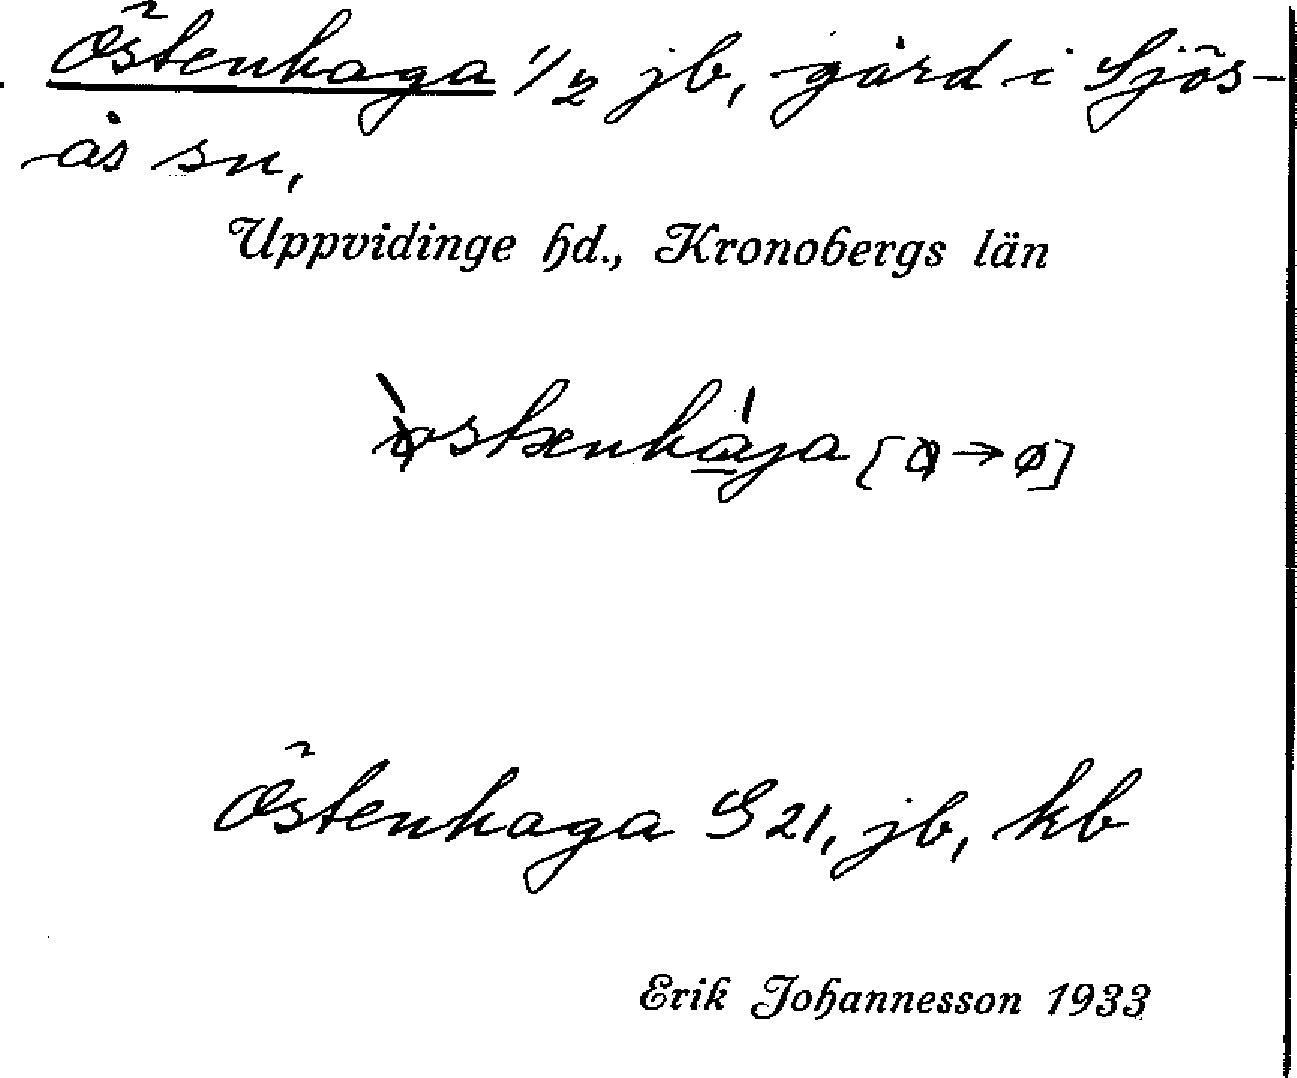 Östenhaga 1/2 jb, gård i Sjös-
ås sn,
Uppvidinge hd., Kronobergs län
Östenhaga G 21, jb, kb
Erik Johannesson 1933